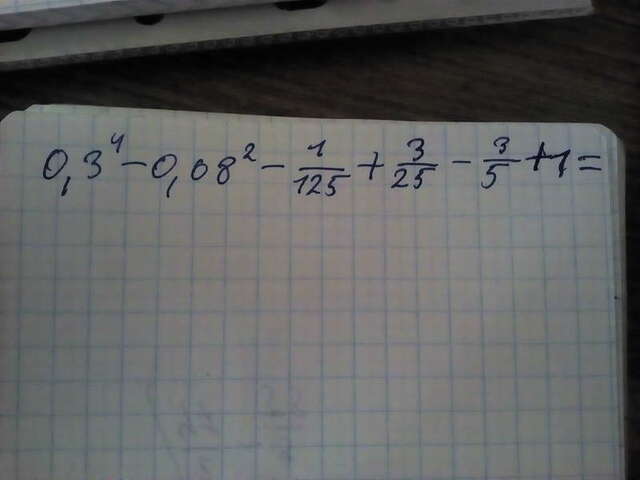 0,3⁴ - 0,08² - 1/125 + 3/25 - 3/5 + 1 =